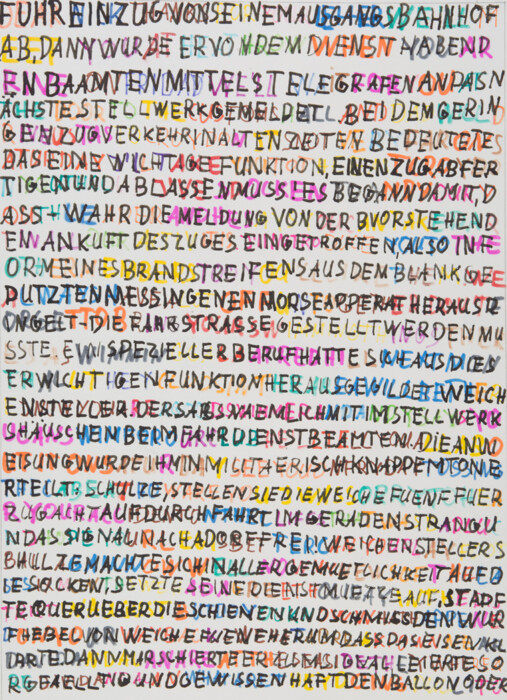 FUHR EIN ZUG VON SEINEM AUSGANGSBAHNHOF
AB, DANN WURDE ER VON DEM DIENST HABEND
ENBAAMTEN MITTELS TELEGRAFEN AN DAS N
ÄCHSTE STELLWERK GEMELDET. BEI DEM GERIN
GEN ZUGVERKEHR IN ALTEN ZEITEN BEDEUTETE
DAS EINE WICHTAGE FUNKTION, EINEN ZUG ABFER
TIGEN UND ABLASSEN MUSS ES BEGANN DAMIT, D
ASS WAHR DIE MELDUNG VON DER BVORSTEHEND
EN ANKUFT DES ZUGES EINGETROFFEN, ALSO IN F
ORM EINES BRANDSTREIFENS AUS DEM BLANK GE
PUTZTEN MESSINGENEN MORSEAPPERAT HERAUS
DIE STRASSE GESTELLT WERDEN MU
SSTE. SPEZIELLER BERUF HATTE SICH AUS DIES
ER WICHTIGEN FUNKTION HERAUSGEBILDET WEICH
ENSTELLER. DER SASS NAEMLICH MIT IM STELLWERK
SHÄUSCHEN BEIM FAHRDIENSTBEAMTEN. DIE ANW
EISUNG WURDE IHM IN MILITAERISCH KNAPPEM TON E
RTEILT: SCHULZE, STELLEN SIE DIE WEICHE FUENF FUER
ZUG ACHT AUF DURCHFAHRT IM GERADEN STRANG U
ND AS SIGNAL NACH ADORF FREI. WEICHENSTELLER S
BHULZE MACHTE SICH IN ALLER GEMUETLICHKEIT AUF D
IE SOCKEN, SETZTE SEINE DIENSTMUETZE AUF, STAPF
TE QUER UEBER DIE SCHIENEN UND SCHMISS DEN WUR
FHEBEL VON WEICHE FUENF HERUM, DASS DAS EISEN KL
IRRTE. DANN MARSCHIERTE ER
RGFAELTIG UND GEWISSENHAFT DEN BALLON ODER